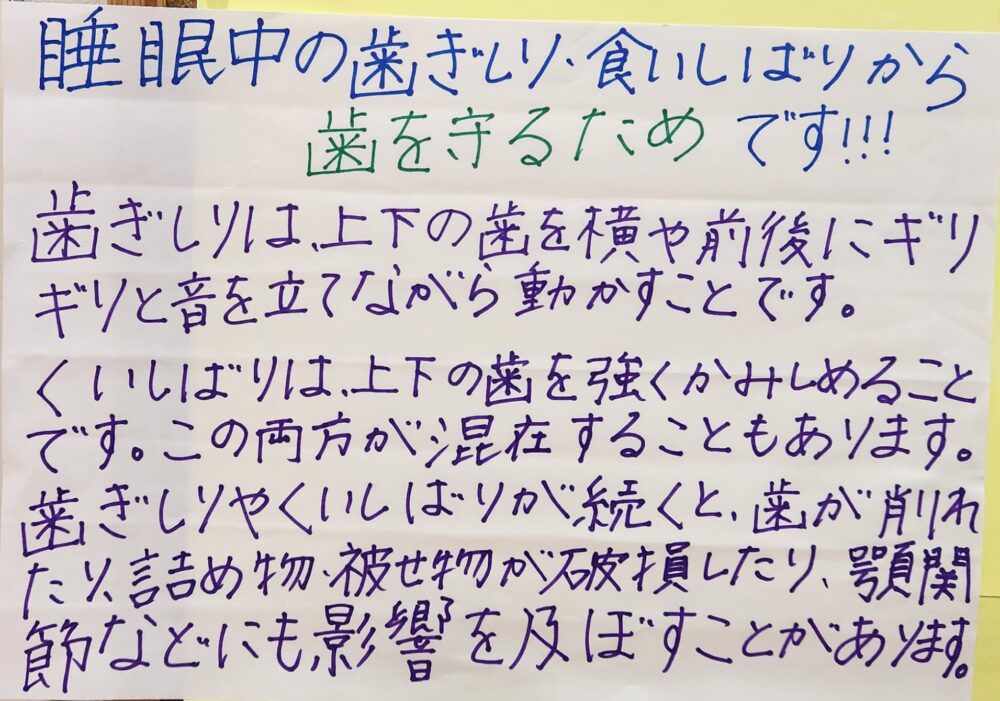 睡眠中の歯ぎしり・食いしばりから
歯を守るためです!!!
歯ぎしりは、上下の歯を横や前後にギリ
ギリと音を立てながら動かすことです。
くいしばりは、上下の歯を強くかみしめること
です。この両方が混在することもあります。
歯ぎしりやくいしばりが続くと、歯が削れ
たり、詰め物・被せ物が破損したり、顎関
節などにも影響を及ぼすことがあります。